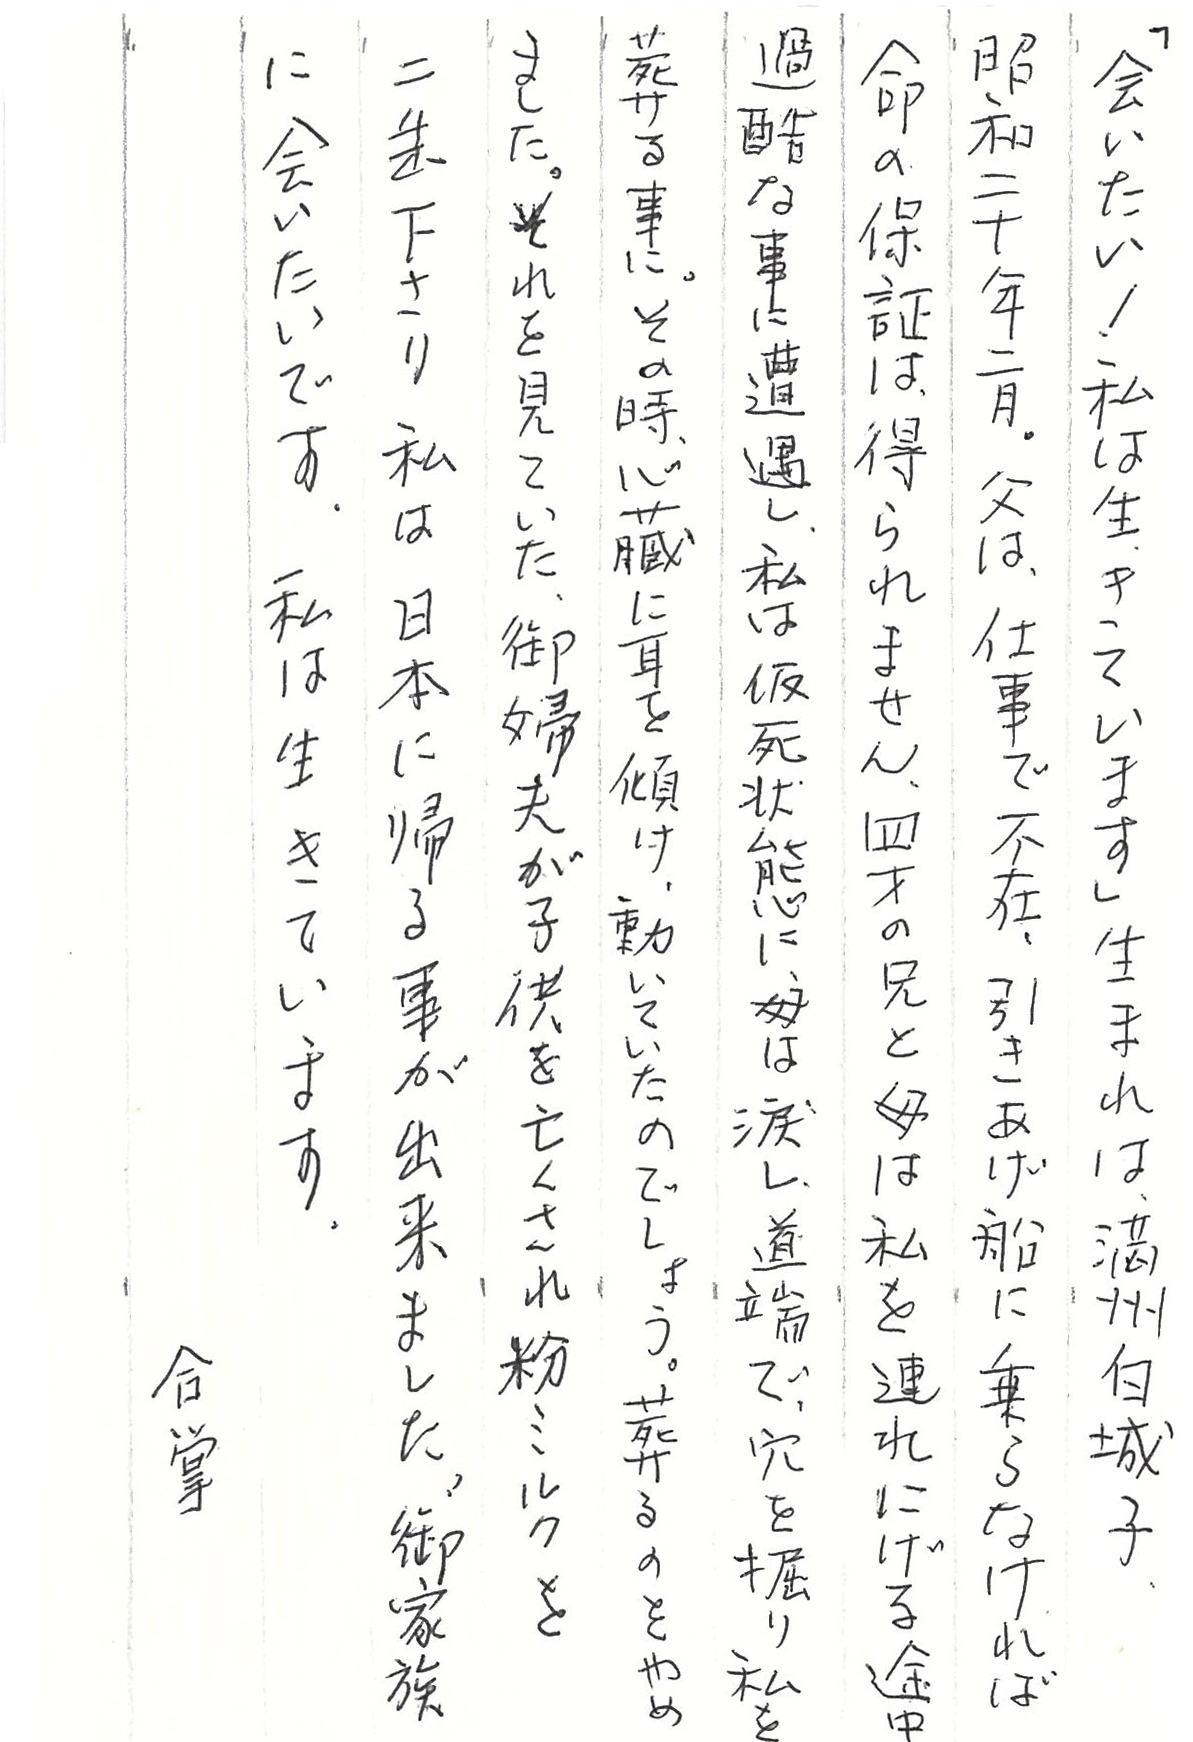 「会いたい！私は生きています」生まれは、満州白城子、
昭和二十年二月。父は、仕事で不在、引きあげ船に乗らなければ
命の保証は、得られません、四才の兄と母は私を連れにげる途中
過酷な事に遭遇し、私は仮死状態に母は涙し、道端で、穴を掘り私を
葬る事に。その時、心臓に耳を傾け、動いていたのでしょう。葬るのをやめ
ました。それを見ていた、御婦夫が子供を亡くされ粉ミルクを
二缶下さり私は日本に帰る事が出来ました。御家族
に会いたいです。私は生きています。
合掌